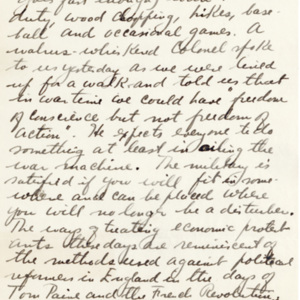 duty, wood chopping, hikes, base-
ball and occasional games. A
walrus-whiskered Colonel spoke
to us yesterday as we were lined
up for a walk and told us that
in war time we could have "freedom
of conscience but not freedom of
action". He expects everyone to do
something at least in oiling the
war machine. The military is
satisfied if you will fit in some-
where and can be placed where
you will no longer be a disturber.
The ways of treating economic protest
ants these days are reminiscent of
the methods used against political
reformers in England in the days of
Tom Paine and the French Revolution